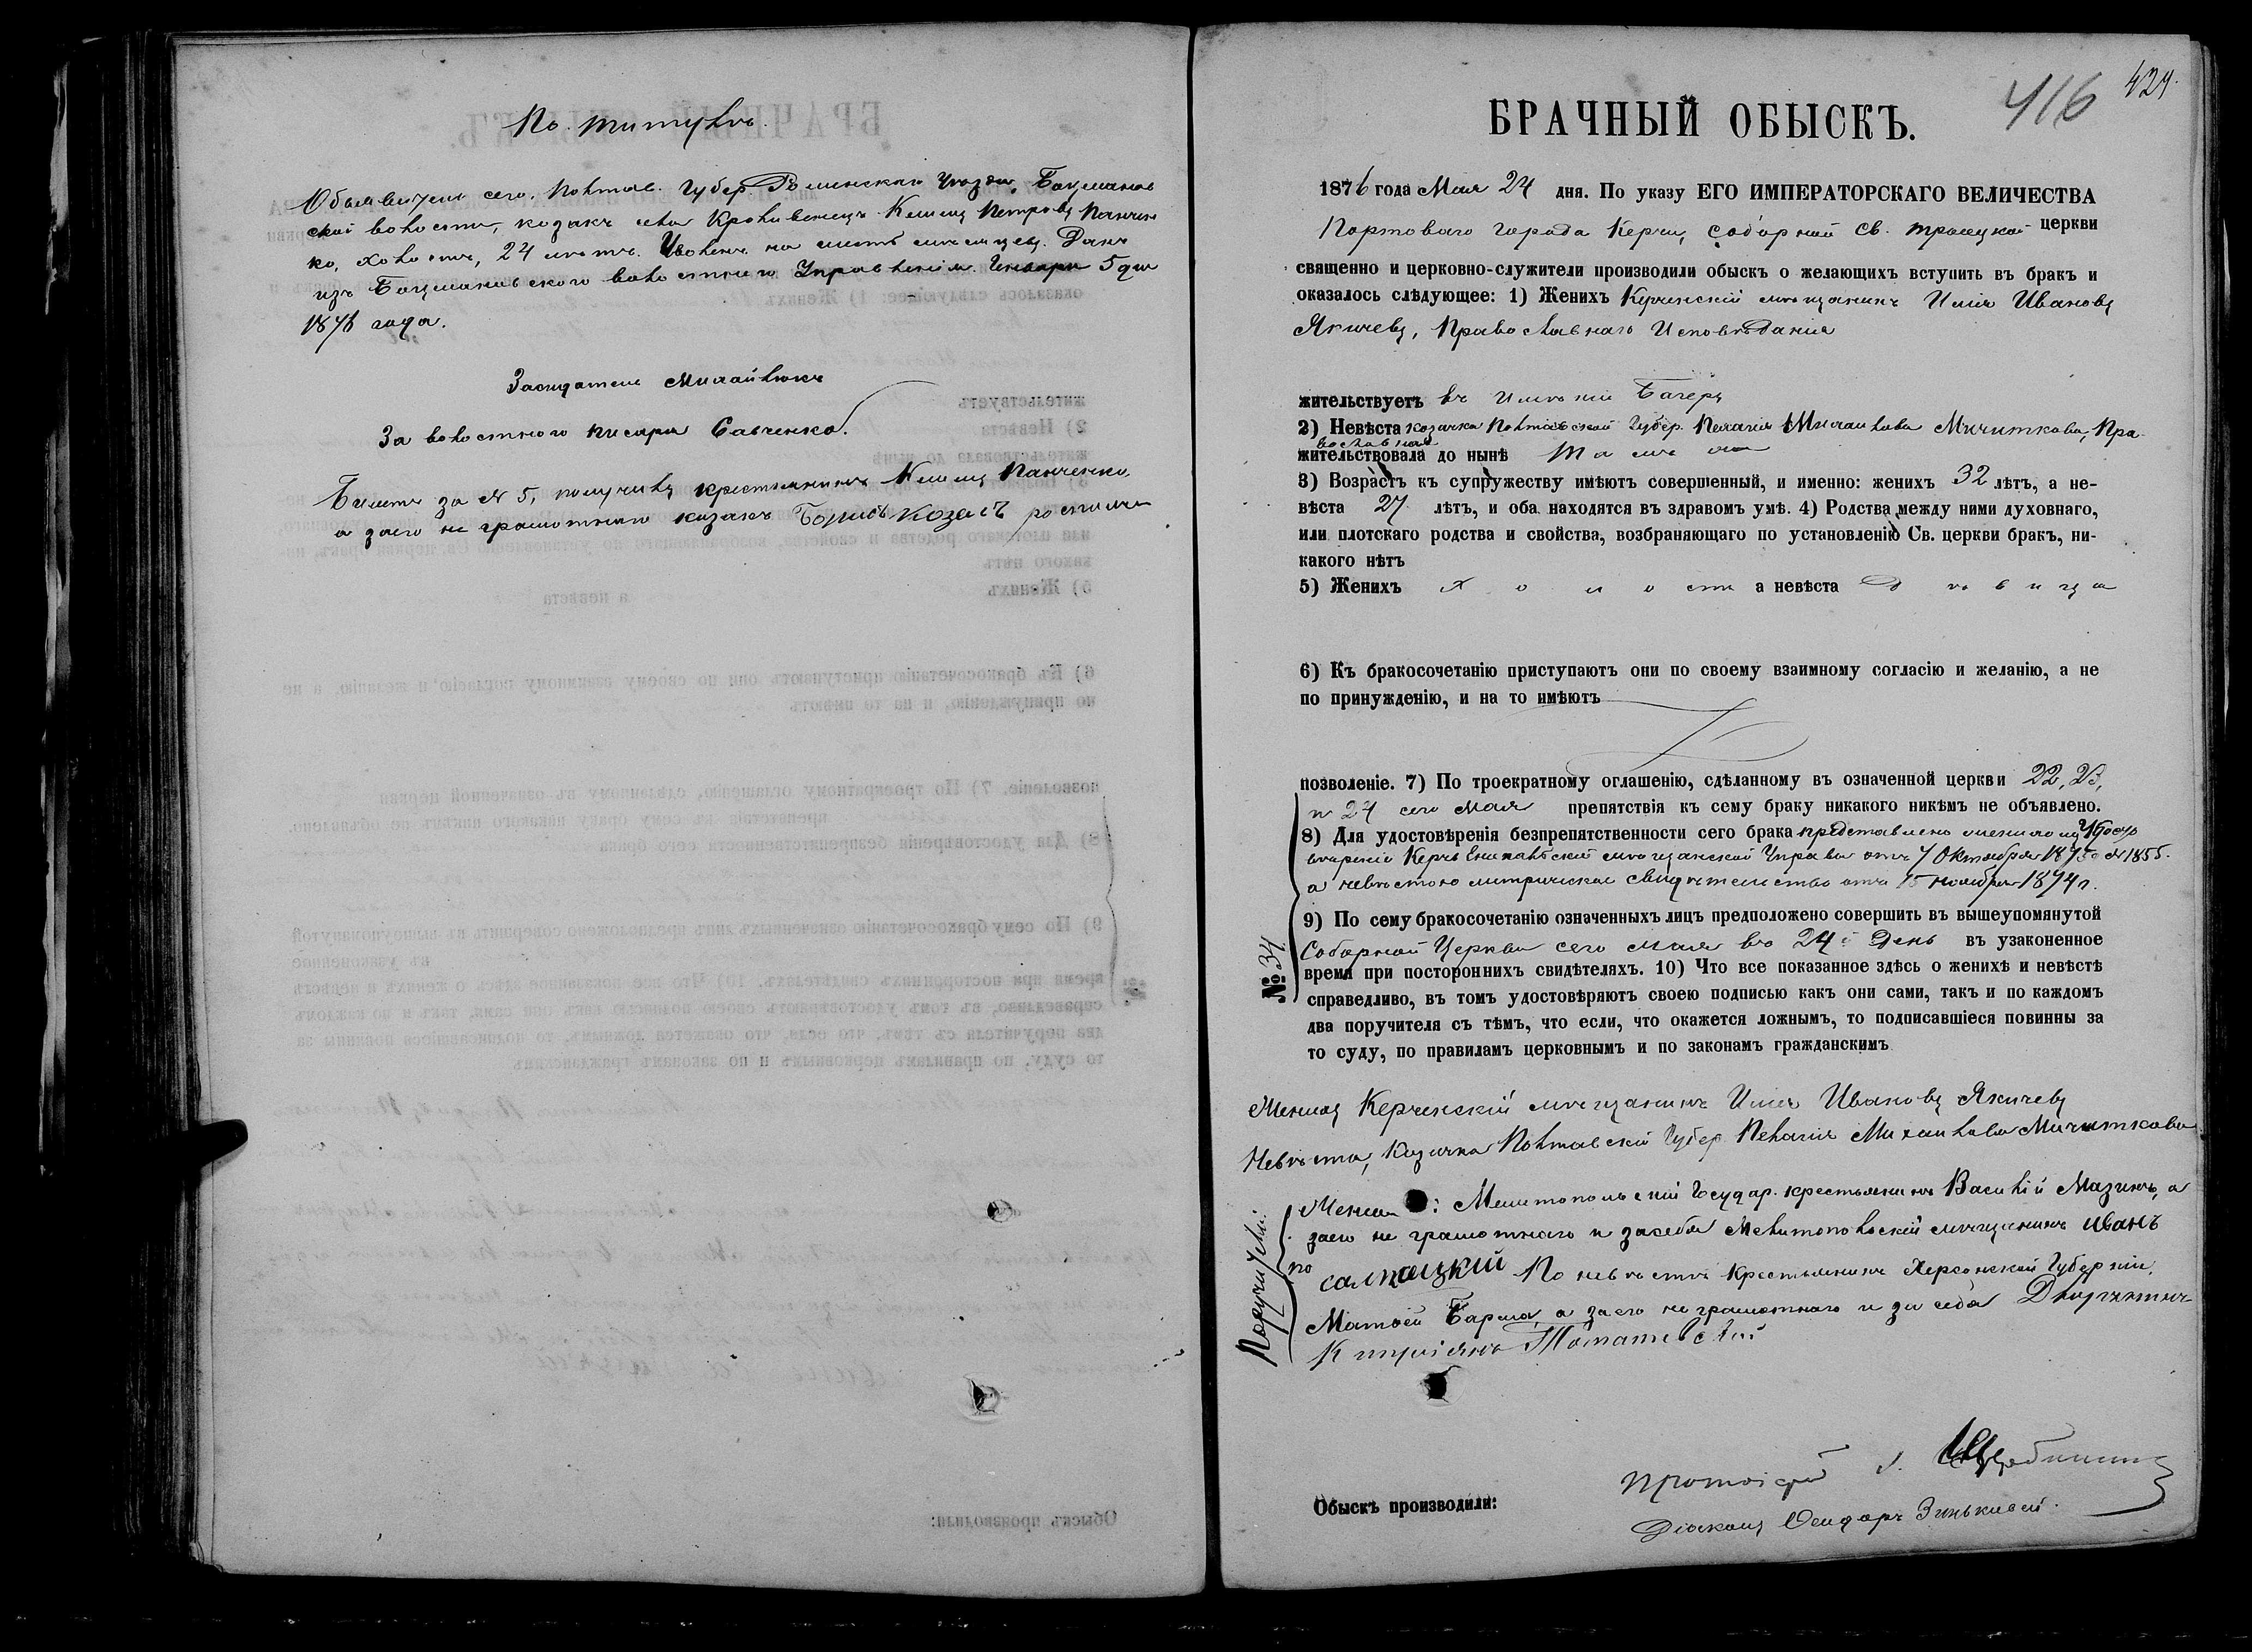 По титулѣ.
Объявитель сего, Полтав. Губер. Роменскаго Уѣзда, Бацманов
ской волости, козакъ села Кропивенецъ Климъ Петровъ Панчен
ко, холостъ, 24 лѣтъ. Уволенъ на шесть мѣсяцевъ. Данъ
изъ Бацмановского волостнаго Управленія. Января 5 дня
1876 года.
Засѣдатель Михайлюкъ
За волостного писаря Савченко.
Билетъ за № 5, получилъ крестьянинъ Климъ Панченко,
а за его не грамотнаго козакъ Борисъ Козасъ росписался
416 424.
БРАЧНЫЙ ОБЫСКЪ.
1876 года Мая 24 дня. По указу ЕГО ИМПЕРАТОРСКАГО ВЕЛИЧЕСТВА
Портоваго города Керчи, Соборной Св. Троицкой церкви
священно и церковно-служители производили обыскъ о желающихъ вступить въ бракъ и
оказалось слѣдующее: 1) Женихъ Керченскій мѣщанинъ Илія Ивановъ
Якичевъ, Православнаго Исповѣданія
жительствуетъ въ имѣніи Багеръ
2) Невѣста козачка Полтавской Губер. Пелагія Михаилова Мичиткова, Пра-
вославная
жительствовала до нынѣ Тамъ же
3) Возрастъ къ супружеству имѣютъ совершенный, и именно: женихъ 32 лѣтъ, а не-
вѣста 27 лѣтъ, и оба находятся въ здравомъ умѣ. 4) Родства между ними духовнаго,
или плотскаго родства и свойства, возбраняющаго по установленію Св. церкви бракъ, ни-
какого нѣтъ
5) Женихъ Холостъ а невѣста Дѣвица
6) Къ бракосочетанію приступаютъ они по своему взаимному согласію и желанію, а не
по принужденію, и на то имѣютъ
позволеніе. 7) По троекратному оглашенію, сдѣланному въ означенной церкви 22, 23,
и 24 сего Мая препятствія къ сему браку никакого никѣмъ не объявлено.
8) Для удостовѣренія безпрепятственности сего брака представлено женихомъ Удосто
вѣреніе Керчь Еникальской мѣщанской Управы отъ 7 Октября 1875 г № 1855.
а невѣстою метрическое свидѣтельство отъ 15 ноября 1874 г.
9) По сему бракосочетанію означенныхъ лицъ предположено совершить въ вышеупомянутой
Соборной Церкви сего мая въ 24й День въ узаконенное
время при постороннихъ свидѣтеляхъ. 10) Что все показанное здѣсь о женихѣ и невѣстѣ
справедливо, въ томъ удостовѣряютъ своею подписью какъ они сами, такъ и по каждомъ
два поручителя съ тѣмъ, что если, что окажется ложнымъ, то подписавшіеся повинны за
то суду, по правиламъ церковнымъ и по законамъ гражданскимъ
№ 34
Женихъ Керченскій мѣщанинъ Илія Ивановъ Якичевъ
Невѣста, Козачка Полтавской Губер Пелагія Михаилова Мичиткова
Поручители:
по
Женихѣ: Мелитопольскій Государ. крестьянинъ Василій Мазинъ, а
за его не грамотнаго и за себя Мелитопольскій мѣщанинъ Иванъ
Салтацкій По невѣстѣ Крестьянинъ Херсонской Губерніи,
Матвѣй Барма, а за его не грамотнаго и за себя
Кипріянъ
Обыскъ производили:
Протоіерей
Діаконъ Ѳеодоръ Зинькевичъ.